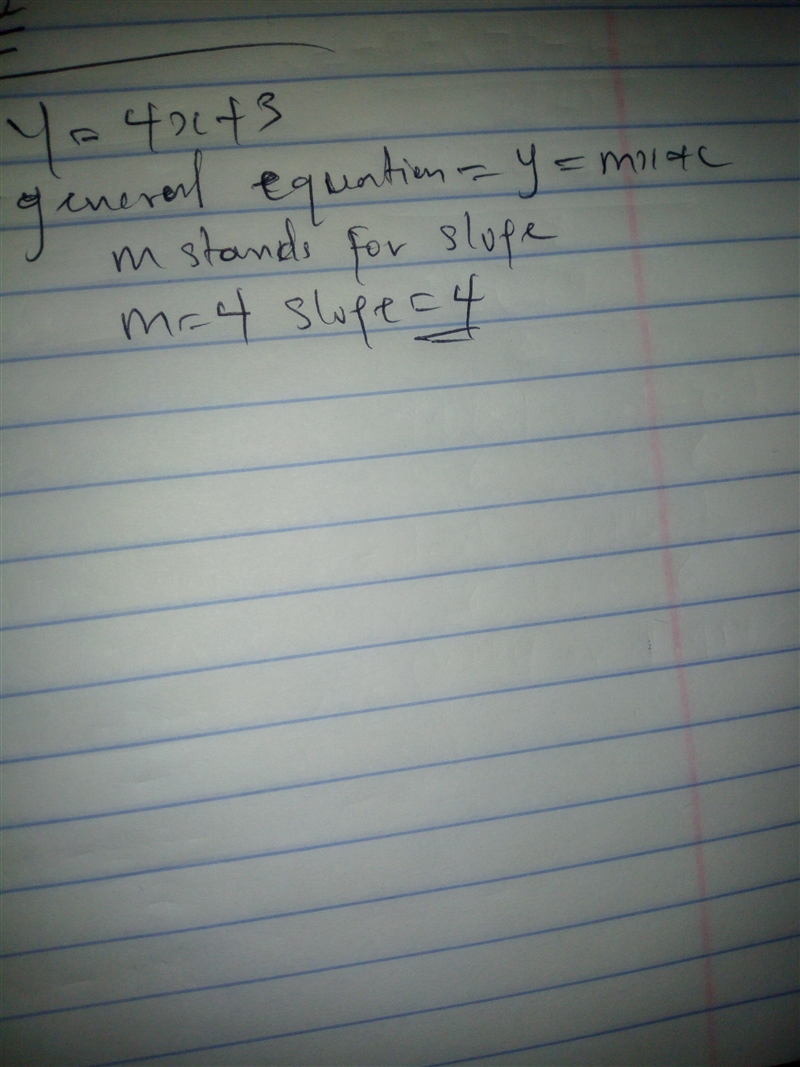 Y = 4x+3
general equation = y = mx+c
m stands for slope
m=4 slope=4